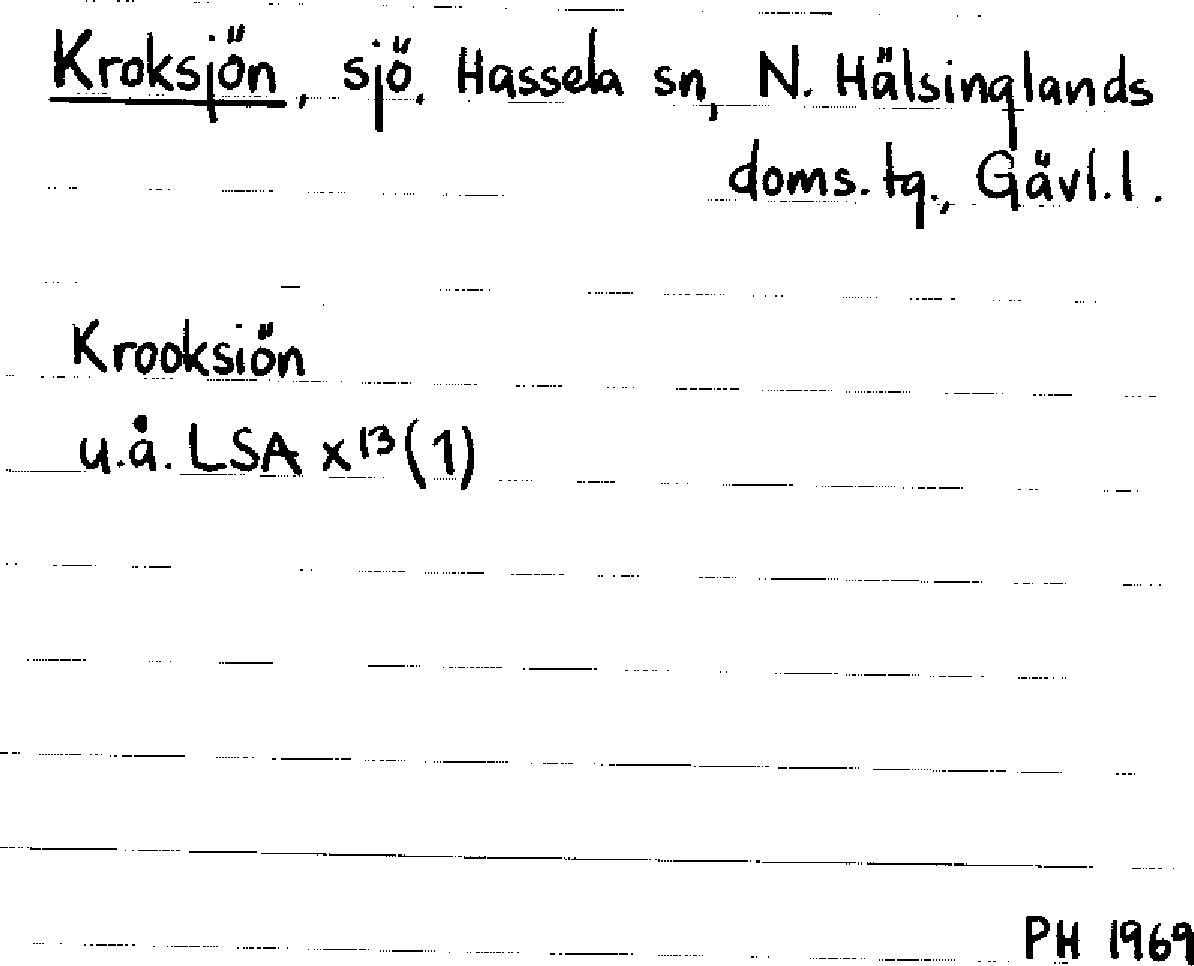 Kroksjön, sjö. Hassela sn, N. Hälsinglands
doms. tg., Gävl. l.
Krooksiön
u.å. LSA x¹³(1)
PH 1969